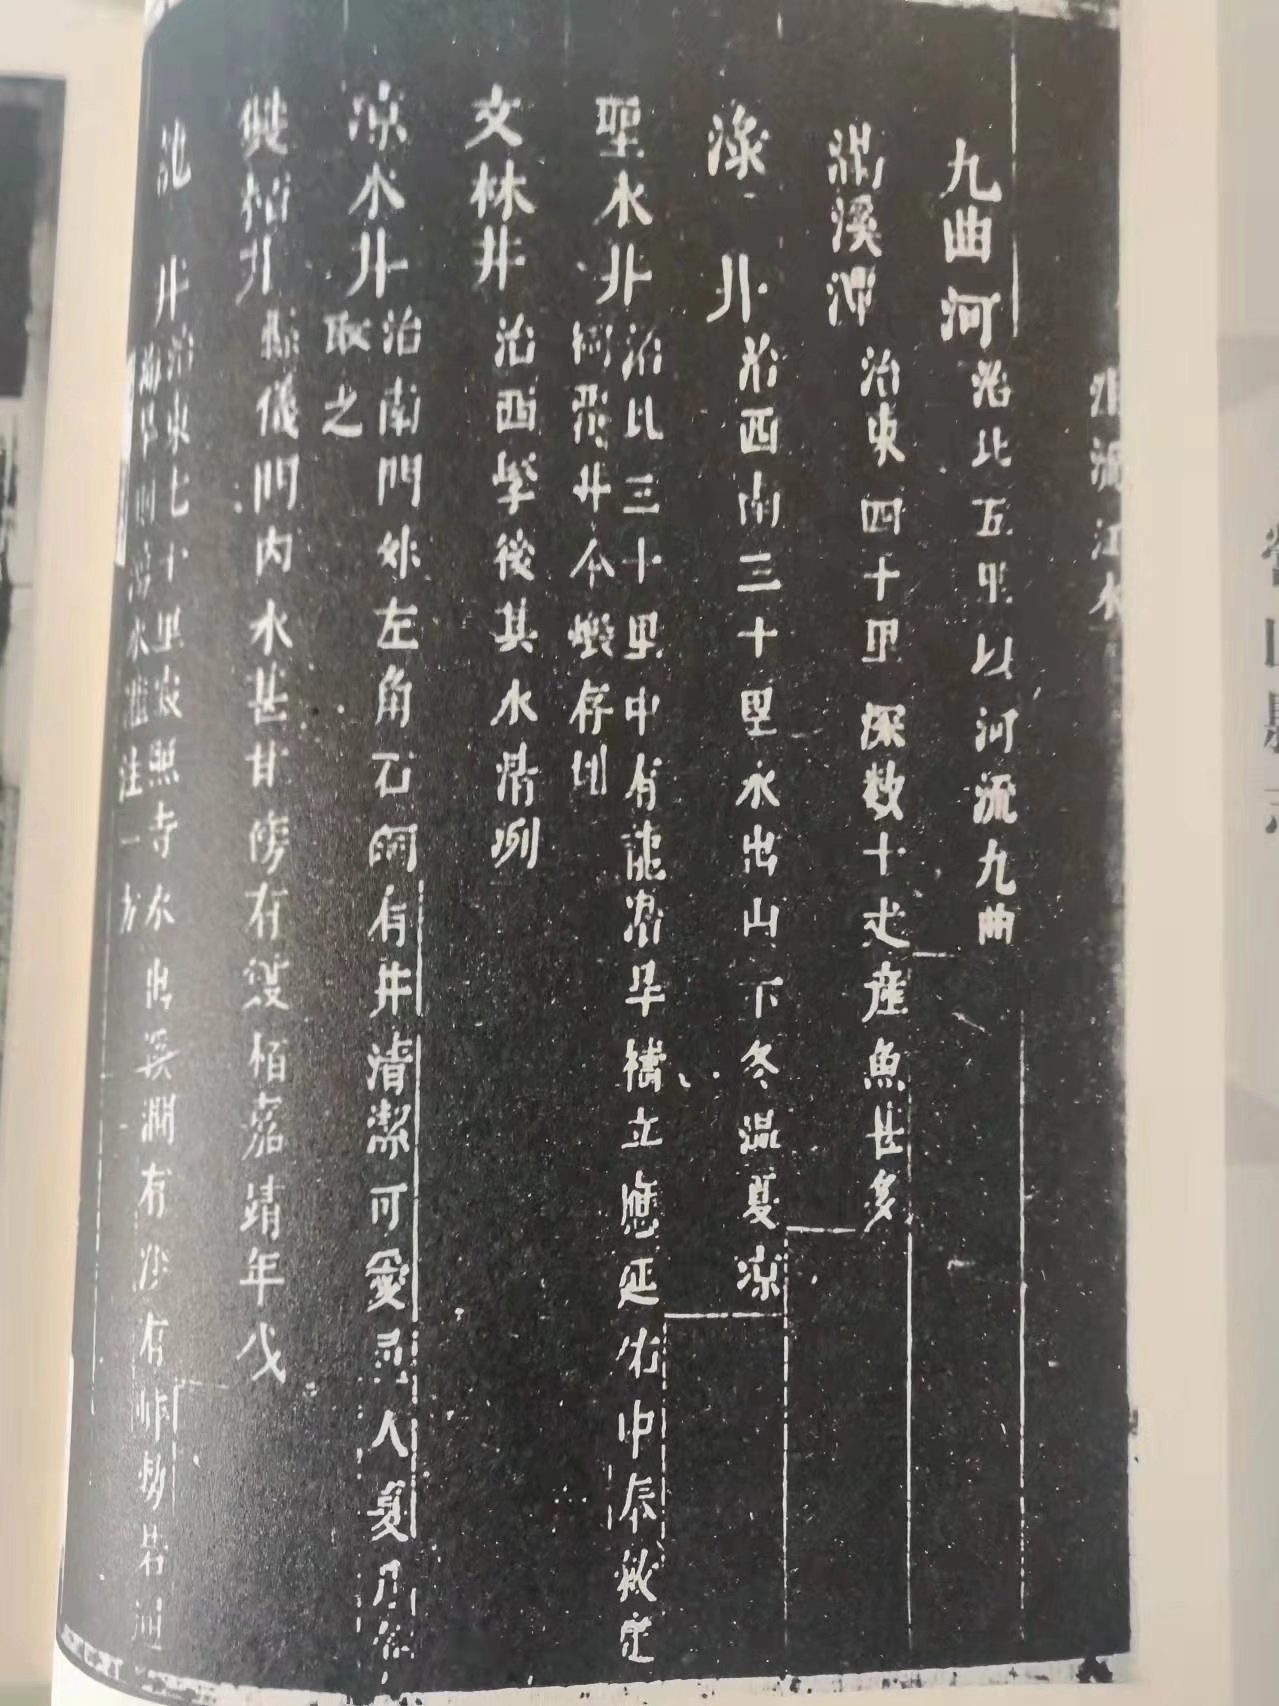 流江水
九曲河治北五里以河流九曲
溪潭治東四十里深數十丈產魚甚多
淥井治西南三十里水出山下冬温夏凉
聖水井治北三十里中有龍湫旱禱立應延佑中奉敕
井今燬存
文林井治西學後其水清冽
凉水井治南門外左角石有井清潔可愛人夏月
取之
雙栢井縣儀門内水甚甘傍有雙栢嘉靖年伐
龍井治東七十里寺水出澗有沙有
水灌注一方
營山縣志